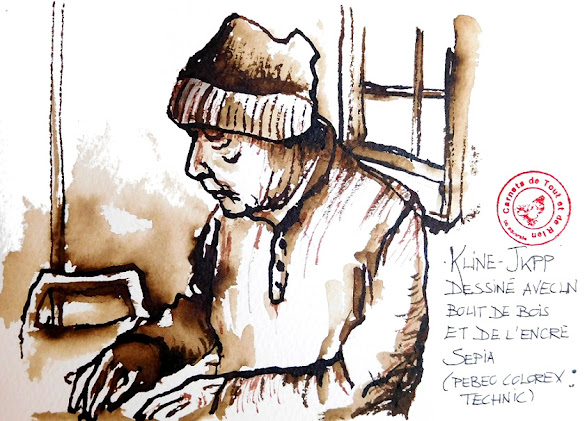 Carnets de Tout et de Rien
. KLINE-JKPP
DESSINÉ AVEC UN
BOUT DE BOIS
ET DE L'ENCRE
SEPIA
(PEBEO COLOREX :
TECHNIC)